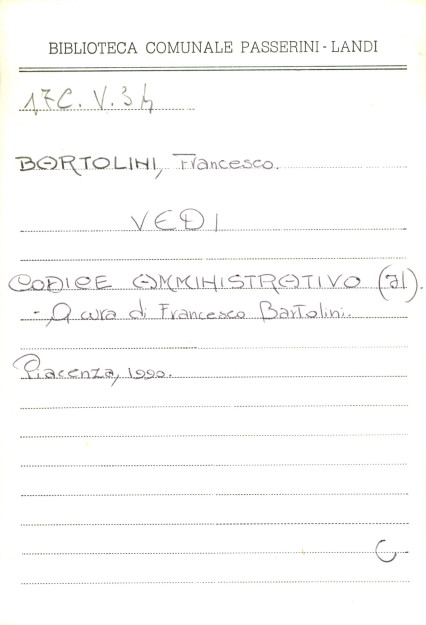 BIBLIOTECA COMUNALE PASSERINI-LANDI
17C. V. 34
BARTOLINI, Francesco.
VEDI
CODICE AMMINISTRATIVO (Il).
- A cura di Francesco Bartolini.
Piacenza, 1990.
C